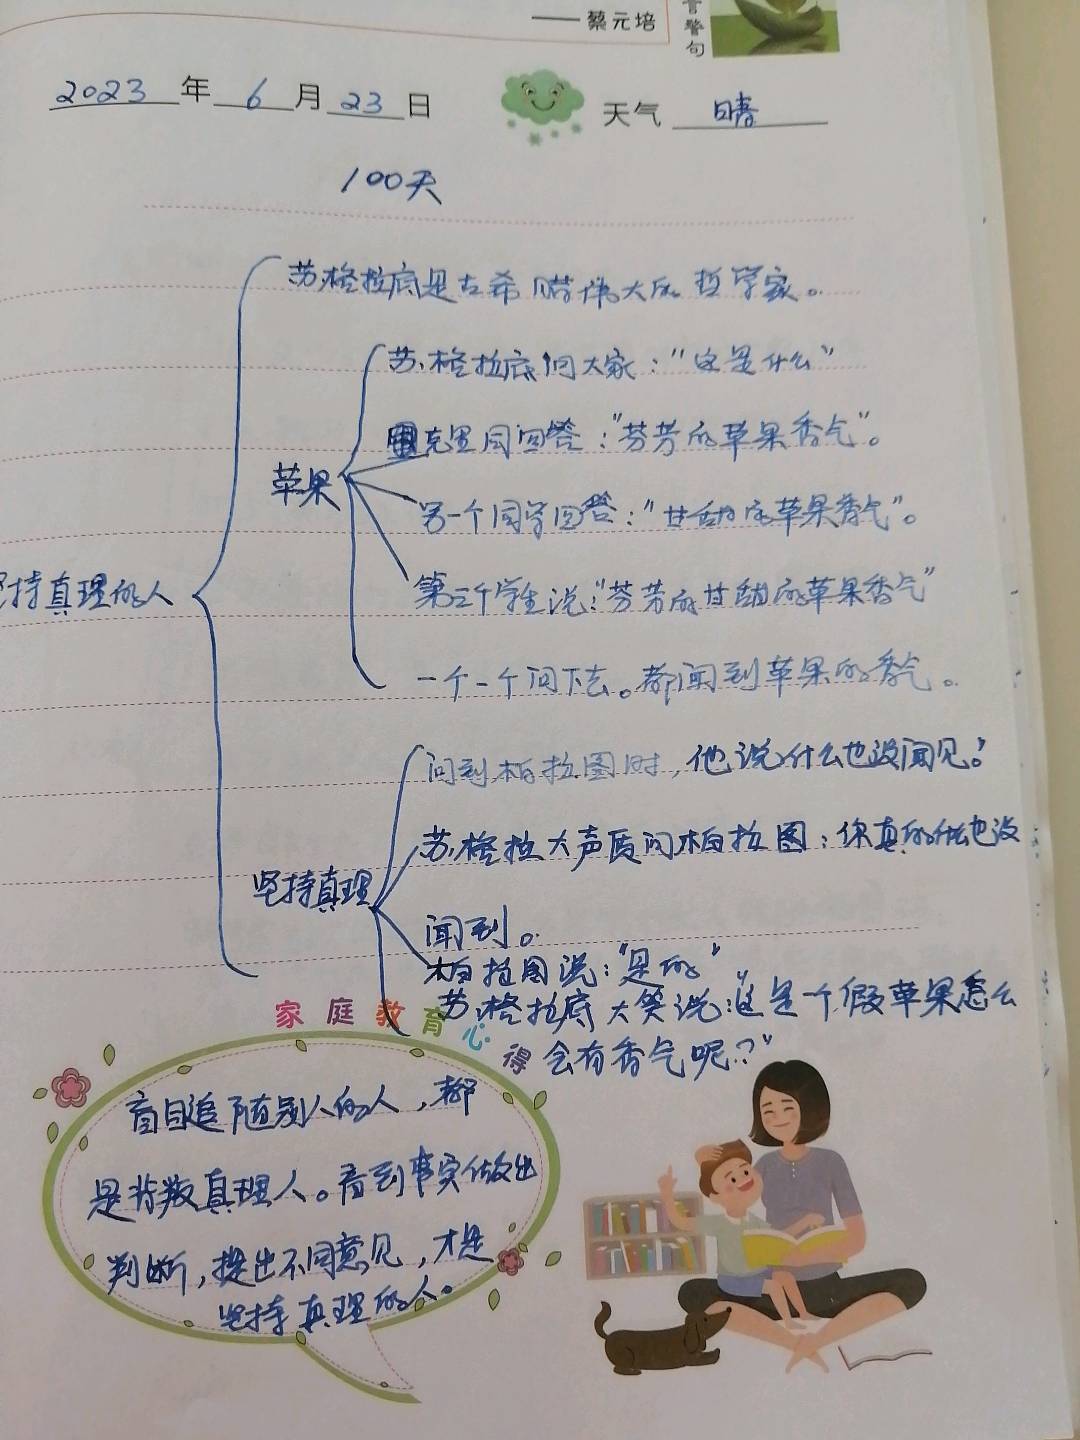 ——蔡元培
警句
2023年6月23日
天气 晴
100天
苏格拉底是古希腊伟大的哲学家。
苏格拉底问大家：“这是什么”
克里同回答：“芬芳的苹果香气”。
苹果
另一个同学回答：“甘甜的苹果香气”。
第三个学生说：“芬芳的甘甜的苹果香气”
持真理的人
一个一个问下去。都闻到苹果的香气。
问到柏拉图时，他说什么也没闻见。”
苏格拉大声质问柏拉图：你真的什么也没
坚持真理
闻到。
柏拉图说：“是的”
苏格拉底大笑说：“这是一个假苹果怎么
会有香气呢？”
家庭教育心得
盲目追随别人的人，都
是背叛真理人。看到事实做出
判断，提出不同意见，才是
坚持真理的人。